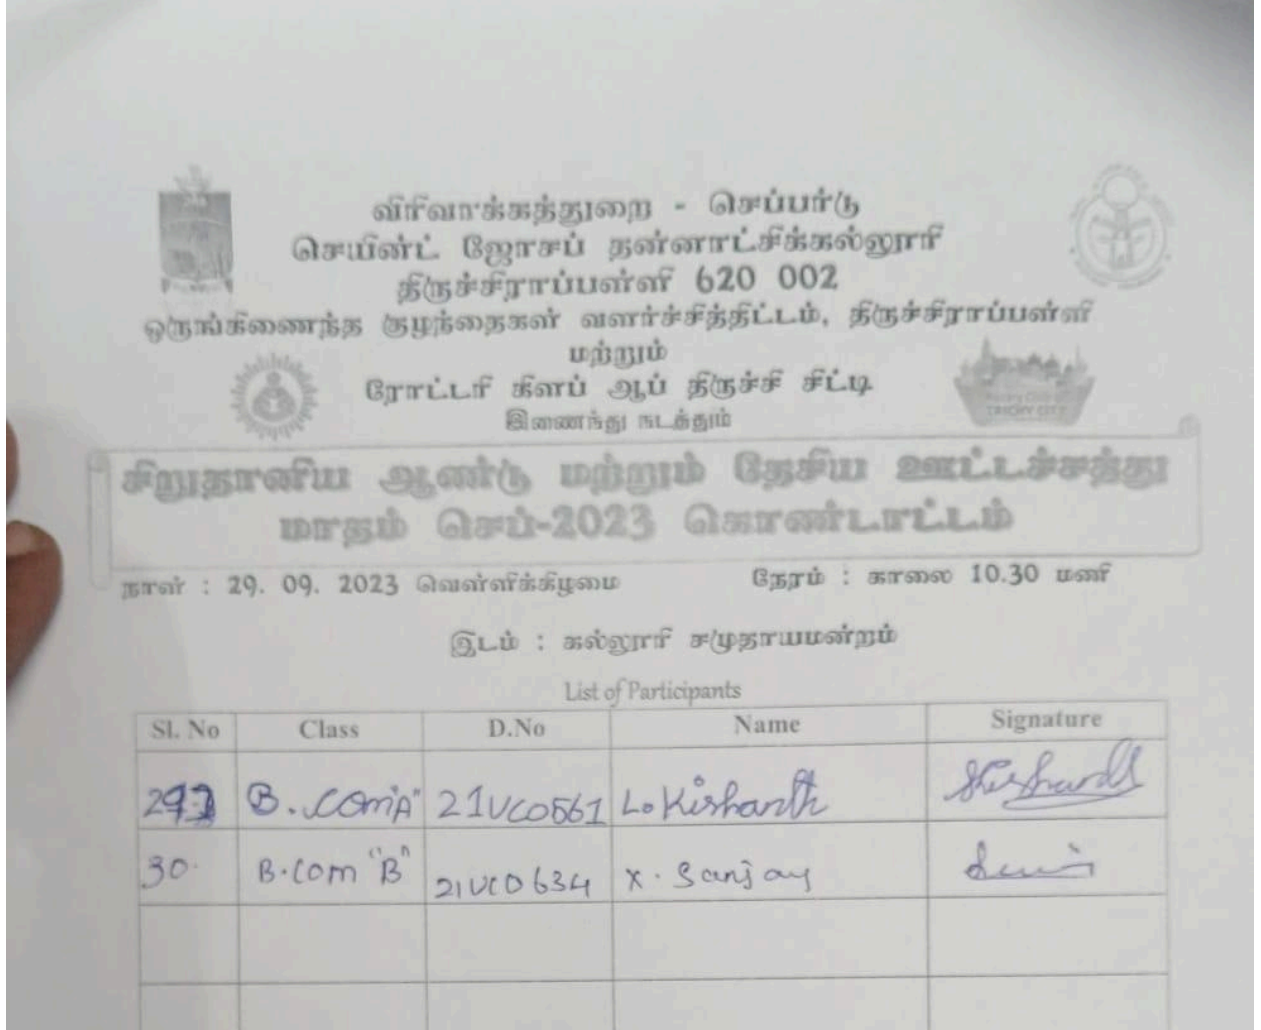 விரிவாக்கத்துறை - செப்பர்டு
செயின்ட் ஜோசப் தன்னாட்சிக்கல்லூரி
திருச்சிராப்பள்ளி 620 002
ஒருங்கிணைந்த குழந்தைகள் வளர்ச்சித்திட்டம், திருச்சிராப்பள்ளி
மற்றும்
ரோட்டரி கிளப் ஆப் திருச்சி சிட்டி
இணைந்து நடத்தும்
TRICHY CITY
சிறுதானிய ஆண்டு மற்றும் தேசிய ஊட்டச்சத்து
மாதம் செப்-2023 கொண்டாட்டம்
நாள் : 29. 09. 2023 வெள்ளிக்கிழமை நேரம் : காலை 10.30 மணி
இடம் : கல்லூரி சமுதாயமன்றம்
List of Participants
Sl. No Class D.No Name Signature
B.com"A" 21UCO561 Lo Kishanth
30. B.com "B" 21UCO634 X. Sanjay